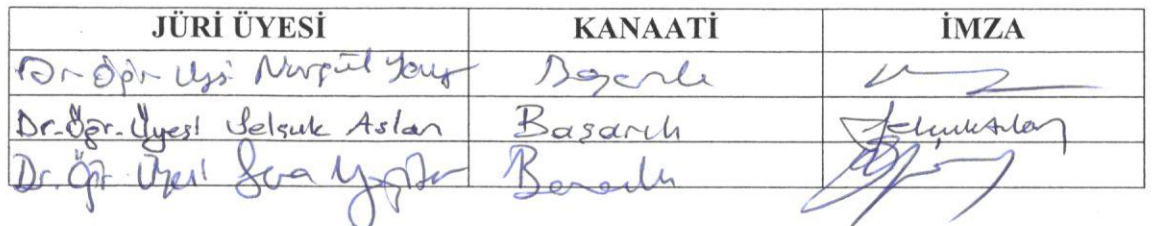 JÜRİ ÜYESİ KANAATİ İMZA
Dr. Öğr. Üyesi Nurgül Başarılı
Dr. Öğr. Üyesi Selçuk Aslan Başarılı Selçuk Aslan
Dr. Öğr. Üyesi Başarılı